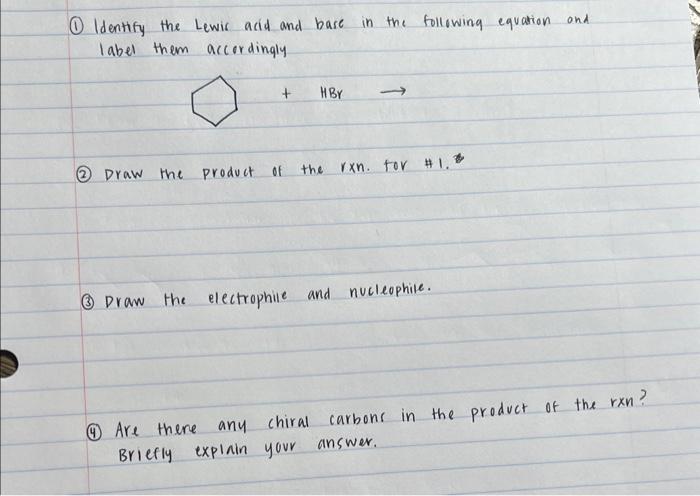 ① Identify the Lewis acid and base in the following equation and
label them accordingly
+ HBr →
② Draw the product of the rxn. for #1.
③ Draw the electrophile and nucleophile.
④ Are there any chiral carbons in the product of the rxn?
Briefly explain your answer.